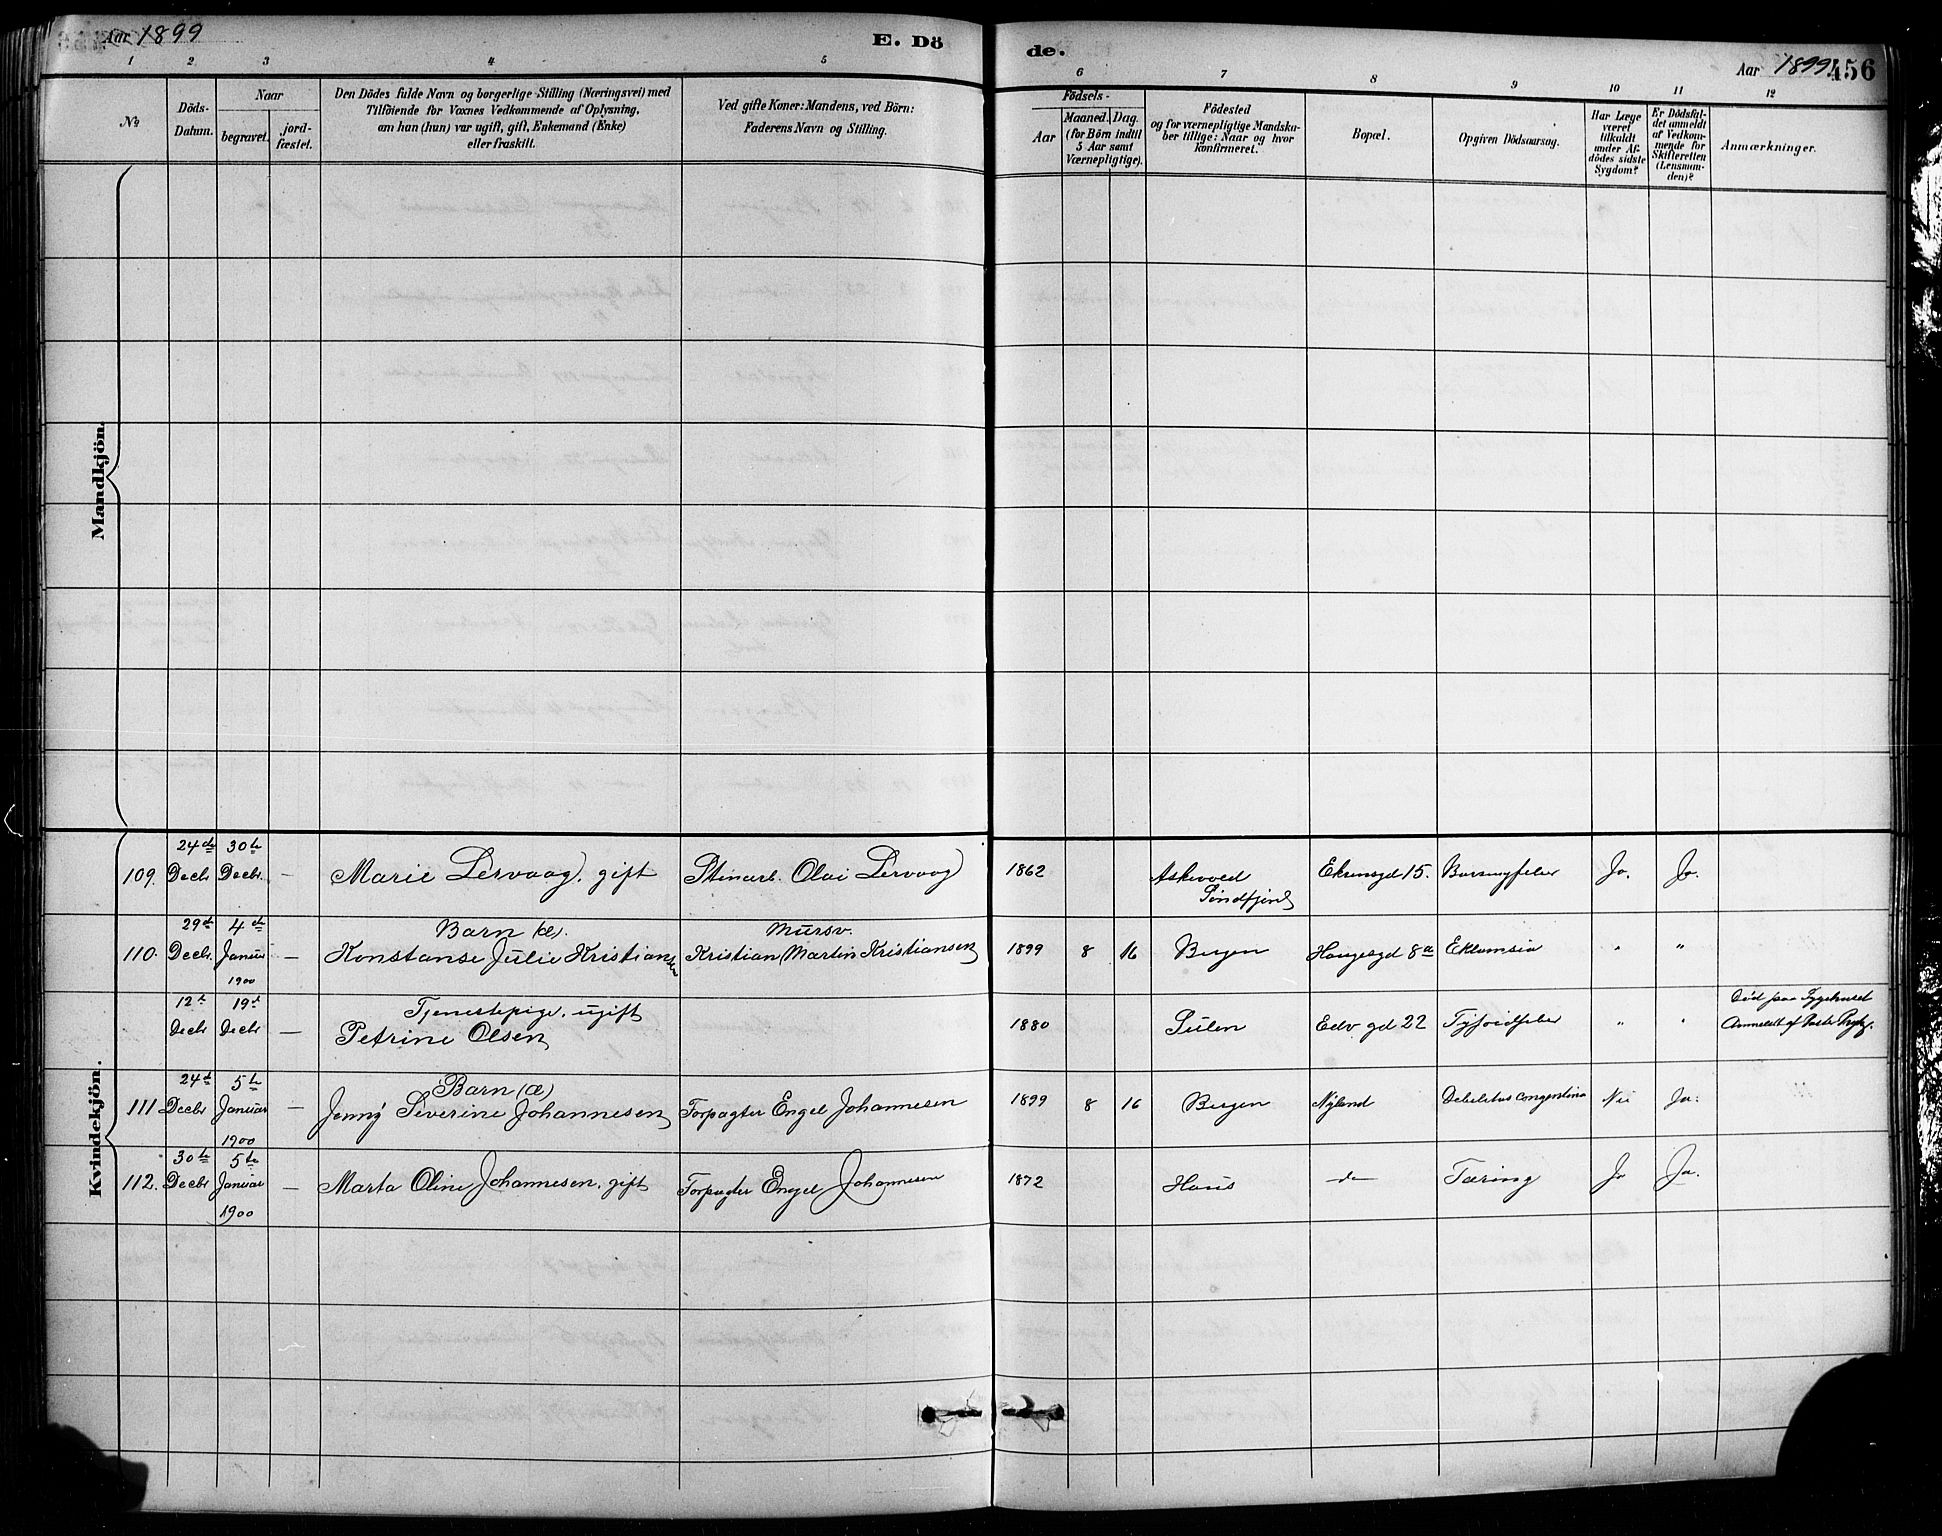 Aar 1899
E. Dö
de.
Aar 1899
456
1 2 3 4 5 6 7 8 9 10 11 12
No
Döds-
Datum.
Naar
begravet.
jord-
fæstet.
Den Dödes fulde Navn og borgerlige Stilling (Næringsvei) med
Tilföiende for Voxnes Vedkommende af Oplysning,
om han (hun) var ugift, gift, Enkemand (Enke)
eller fraskilt.
Ved gifte Koner: Mandens, ved Börn:
Faderens Navn og Stilling.
Födsels-
Aar
Maaned. Dag.
(for Börn indtil
5 Aar samt
Værnepligtige).
Födested
og for værnepligtige Mandska-
ber tillige: Naar og hvor
konfirmeret.
Bopæl.
Opgiven Dödsaarsag.
Har Læge
været
tilkaldt
under Af-
dödes sidste
Sygdom?
Er Dödsfal-
det anmeldt
af Vedkom-
mende for
Skifteretten
(Lensman-
den)?
Anmærkninger.
Mandkjön.
Kvindekjön.
109. 24de Decbr. 30te Decbr. — Marie Lervaag, gift Stenarb. Olai Lervaag 1862 Askevold Söndfjord Ekrensgd 15. Barselfeber Ja. Ja.
110. 29de Decbr. 4de Januar 1900 — Barn (æ).
Konstanse Julie Kristiansen Mursv.
Kristian Martin Kristiansen 1899 8 16 Bergen Haugesgd 8a Eklamsia " "
12te Decbr 19de Decbr — Tjenestepige, ugift
Petrine Olsen 1880 Sulen Edv gd 22 Tyfoidfeber " " Död paa Sygehuset
Anmeldt af
111 24de Decbr 5te Januar 1900 — Barn (æ)
Jenny Severine Johannesen Forpagter Engel Johannesen 1899 8 16 Bergen Nyland Debilitas congenitina Nei Ja.
112. 30te Decbr 5te Januar 1900 — Marta Oline Johannesen, gift Forpagter Engel Johannesen 1872 Haus do Tæring Ja Ja.